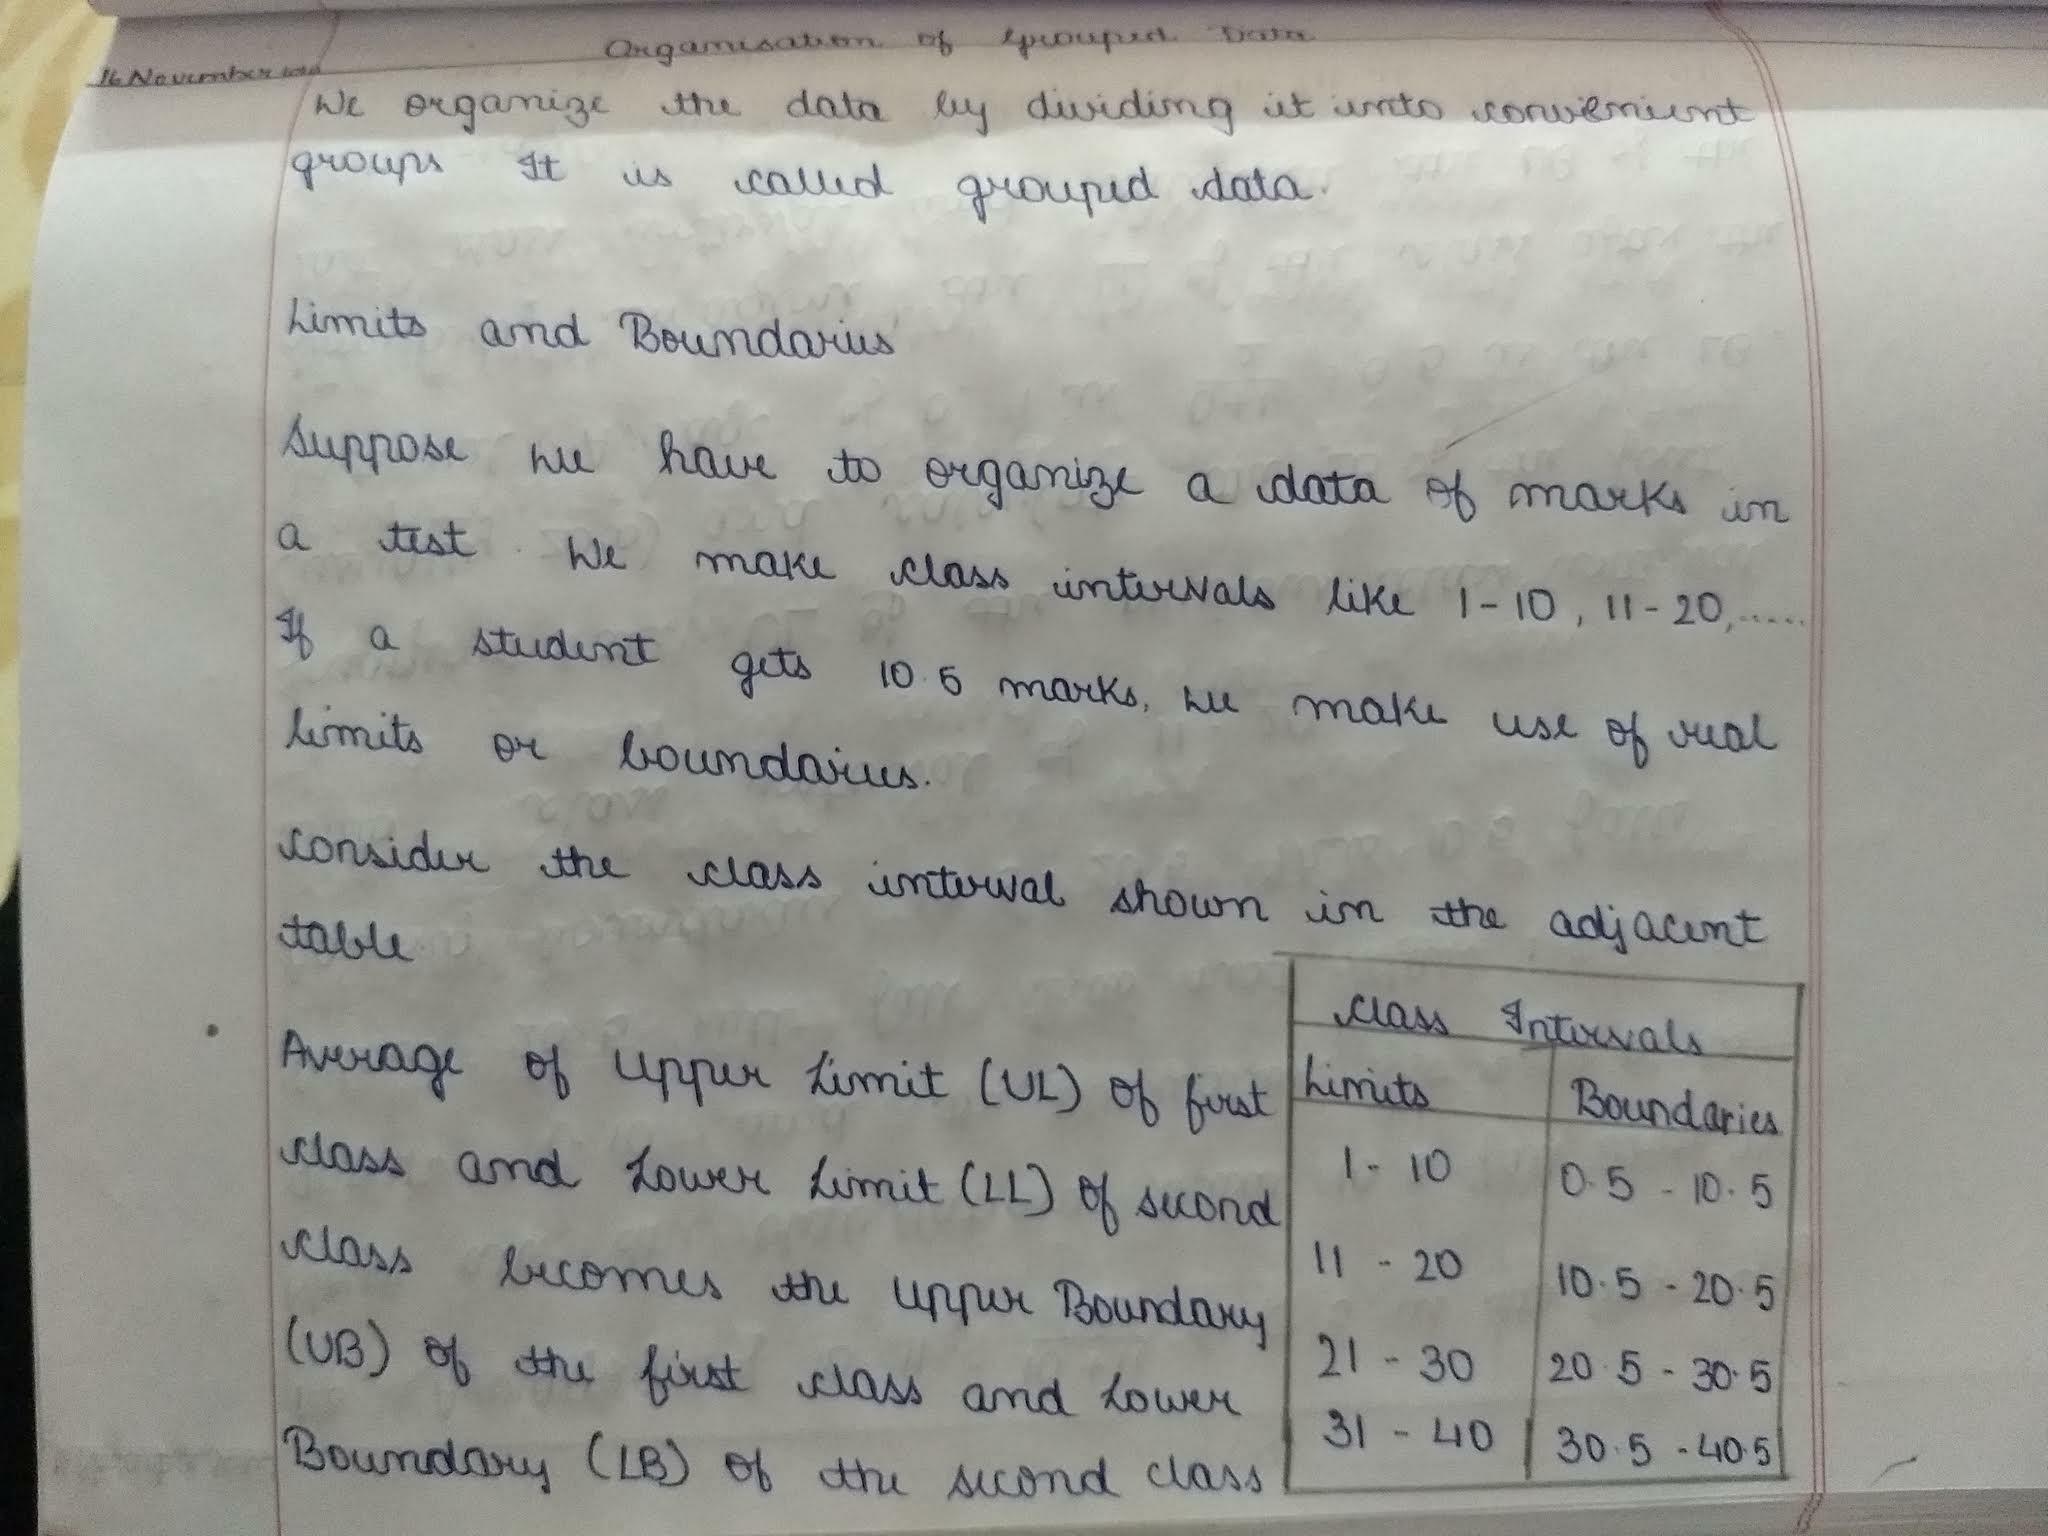 Organisation of Grouped Data
16 November
We organize the data by dividing it into convenient
groups It is called grouped data.
Limits and Boundaries
Suppose we have to organize a data of marks in
a test. We make class intervals like 1-10, 11-20,.....
If a student gets 10.5 marks, we make use of real
limits or boundaries.
consider the class interval shown in the adjacent
table.
Average of Upper Limit (UL) of first
class and Lower Limit (LL) of second
class becomes the upper Boundary
(UB) of the first class and Lower
Boundary (LB) of the second class
Class Intervals
Limits Boundaries
1 - 10 0.5 - 10.5
11 - 20 10.5 - 20.5
21 - 30 20.5 - 30.5
31 - 40 30.5 - 40.5